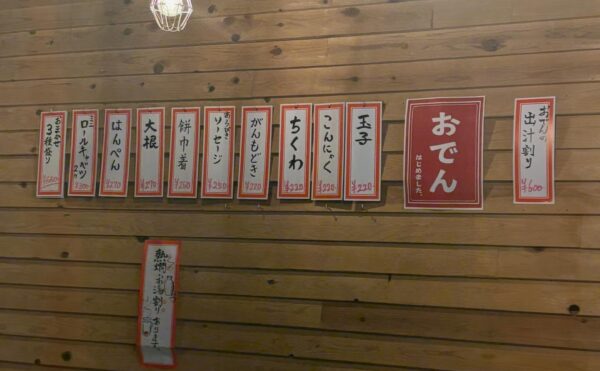 おでんの
出汁割り
¥600
おでん
はじめました。
玉子
¥220
こんにゃく
¥220
ちくわ
¥220
がんもどき
¥220
あらびき
ソーセージ
¥250
餅巾着
¥260
大根
¥270
はんぺん
¥270
ミニ
ロールキャベツ
¥300
おまかせ
3種盛り
熱燗・お湯割りあります。